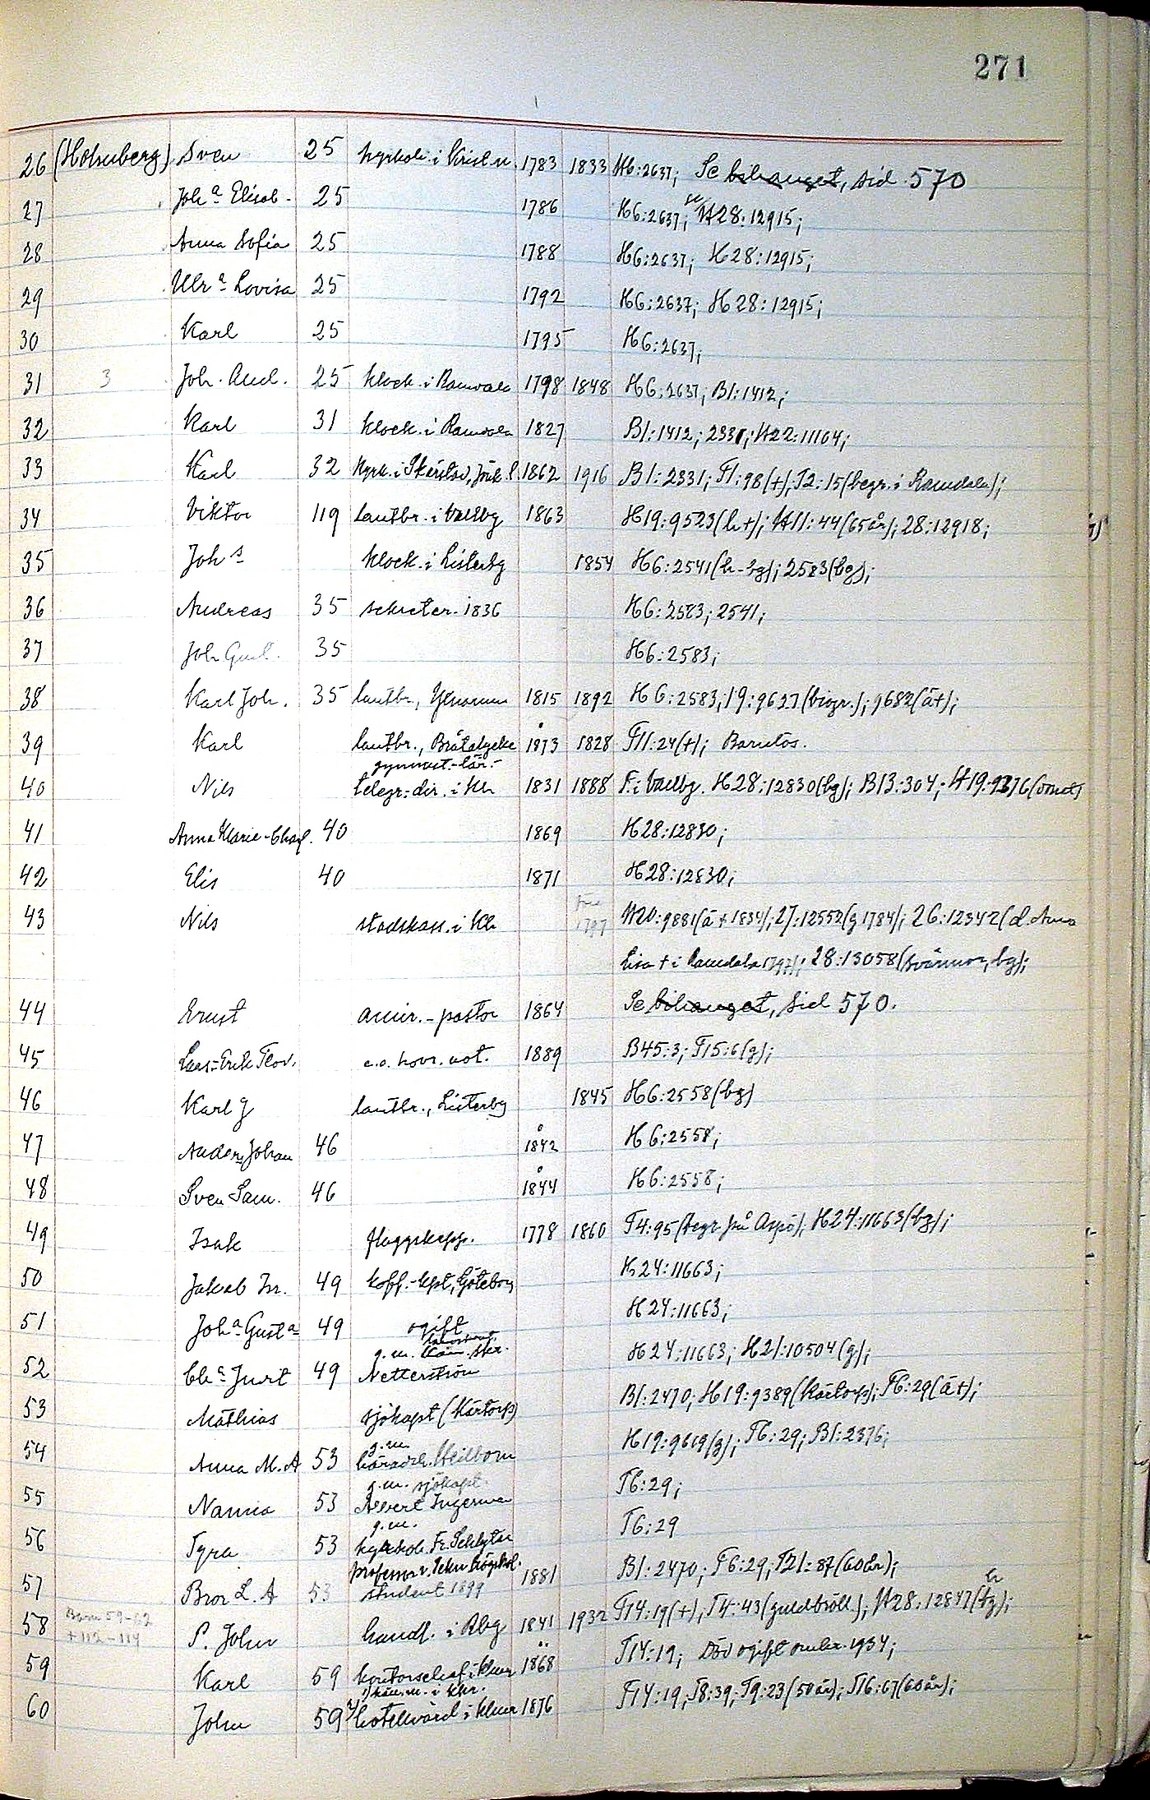 271
26 (Holmberg) Sven 25 kyrkoh. i 1783 1833 H6:2637; Se bihanget, sid. 570
27 Joh:a Elisab. 25 1786 H6:2637; H28:12915;
28 Anna Sofia 25 1788 H6:2637; H28:12915;
29 Ulr:a Lovisa 25 1792 H6:2637; H28:12915;
30 Karl 25 1795 H6:2637;
31 3 Joh. And. 25 klock. i Ramdala 1798 1848 H6:2637; B1:1412;
32 Karl 31 klock. i Ramdala 1827 B1:1412; 2331; H22:11164;
33 Karl 32 1862 1916 B1:2331; T1:98(+); T2:15(begr. i Ramdala);
34 Viktor 119 lantbr. i 1863 H19:9523(h+); H11:44(65år); 28:12918;
35 Joh:s klock. i Listerby 1854 H6:2541(h-bg); 2583(bg);
36 Andreas 35 1836 H6:2583; 2541;
37 Joh Gust. 35 H6:2583;
38 Karl Joh. 35 lantbr., 1815 1892 H6:2583; 19:9627(biogr.); 9682(ä+);
39 Karl lantbr., Bråtabygke 1828 T11:24(+);
gymnast.-lär.-
40 Nils telegr.-dir. i Kkr 1831 1888 H28:12830(bg); B13:304;
41 Anna Marie-Charl. 40 1869 H28:12830;
42 Elis 40 1871 H28:12830;
43 Nils stadskass. i Kkr 1797 H20:9881(ä+1834); 27:12552(g 1784); 26:12342(d. Anna
Lisa + i Ramdala 1797); 28:13058(svärmor, bg);
44 Ernst amir.-pastor 1864 Se bihanget, sid 570.
45 Lars-Erik Teov. e.o. hovr. not. 1889 B45:3; T15:6(g);
46 Karl J lantbr., Listerby 1845 H6:2558(bg)
47 Anders Johan 46 1842 H6:2558;
48 Sven Sam. 46 1844 H6:2558;
49 Isak flaggskepp. 1778 1860 T4:95(begr. från Aspö); H24:11663(bg);
50 Jakob In. 49 koff.-kpt, Göteborg H24:11663;
51 Joh:a Gust:a 49 ogift H24:11663;
g.m. skr.
52 49 Netterström H24:11663; H21:10504(g);
53 Mathias sjökapt (Kärtorp) B1:2470; H19:9389(Kärtorp); T6:29(ä+);
g.m.
54 Anna M. A 53 häradsh. Heilborn H19:9619(g); T6:29; B1:2376;
g.m. sjökapt.
55 Nanna 53 Albert Ingerman T6:29;
g.m.
56 Tyra 53 kyrkoh. Fr. Schlyter T6:29
professor v. Tekn. Högskol.
57 Bror L. A 53 student 1899 1881 B1:2470; T6:29; T21:87(60år);
58 Barn 59-62 + 112-114 P. John handl. i Rby 1841 1932 T14:19(+), T4:43(guldbröll.), H28:12847(bg);
59 Karl 59 kontorschef i khmr 1868 T14:19; Död ogift omkr. 1934;
60 John 59 hotellvärd i khmr 1876 T14:19; T8:39; T9:23(50år); T16:67(60år);